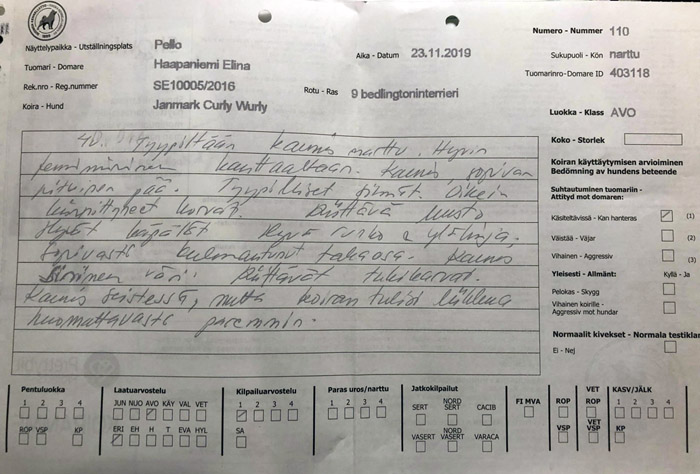 Numero - Nummer 110
Näyttelypaikka - Utställningsplats Pello
Aika - Datum 23.11.2019
Sukupuoli - Kön narttu
Tuomari - Domare Haapaniemi Elina
Tuomarinro-Domare ID 403118
Rek.nro - Reg.nummer SE10005/2016
Rotu - Ras 9 bedlingtoninterrieri
Koira - Hund Janmark Curly Wurly
Luokka - Klass AVO
4v. Tyypiltään kaunis narttu. Hyvin
feminiininen kauttaaltaan. Kaunis, sopivan
pituinen pää. Tyypilliset silmät. Oikein
kiinnittyneet korvat. Riittävä
Hyvät käpälät Hyvä runko & ylälinja.
Sopivasti kulmautunut takaosa. Kaunis
Sininen väri. Riittävät tukikarvat.
Kaunis seistessä, mutta koiran tulisi liikkua
huomattavasti paremmin.
Koko - Storlek
Koiran käyttäytymisen arvioiminen
Bedömning av hundens beteende
Suhtautuminen tuomariin -
Attityd mot domaren:
Käsiteltävissä - Kan hanteras (1)
Väistää - Väjar (2)
Vihainen - Aggressiv (3)
Yleisesti - Allmänt: Kyllä - Ja
Pelokas - Skygg
Vihainen koirille -
Aggressiv mot hundar
Normaalit kivekset - Normala testiklar
Ei - Nej
Pentuluokka
1 2 3 4
ROP VSP KP
Laatuarvostelu
JUN NUO AVO KÄY VAL VET
ERI EH H T EVA HYL
Kilpailuarvostelu
1 2 3 4
SA
Paras uros/narttu
1 2 3 4
Jatkokilpailut
SERT NORD SERT CACIB
VASERT NORD VASERT VARACA
FI MVA
ROP
VSP
VET ROP
VET VSP
KASV/JÄLK
1 2 3 4
KP